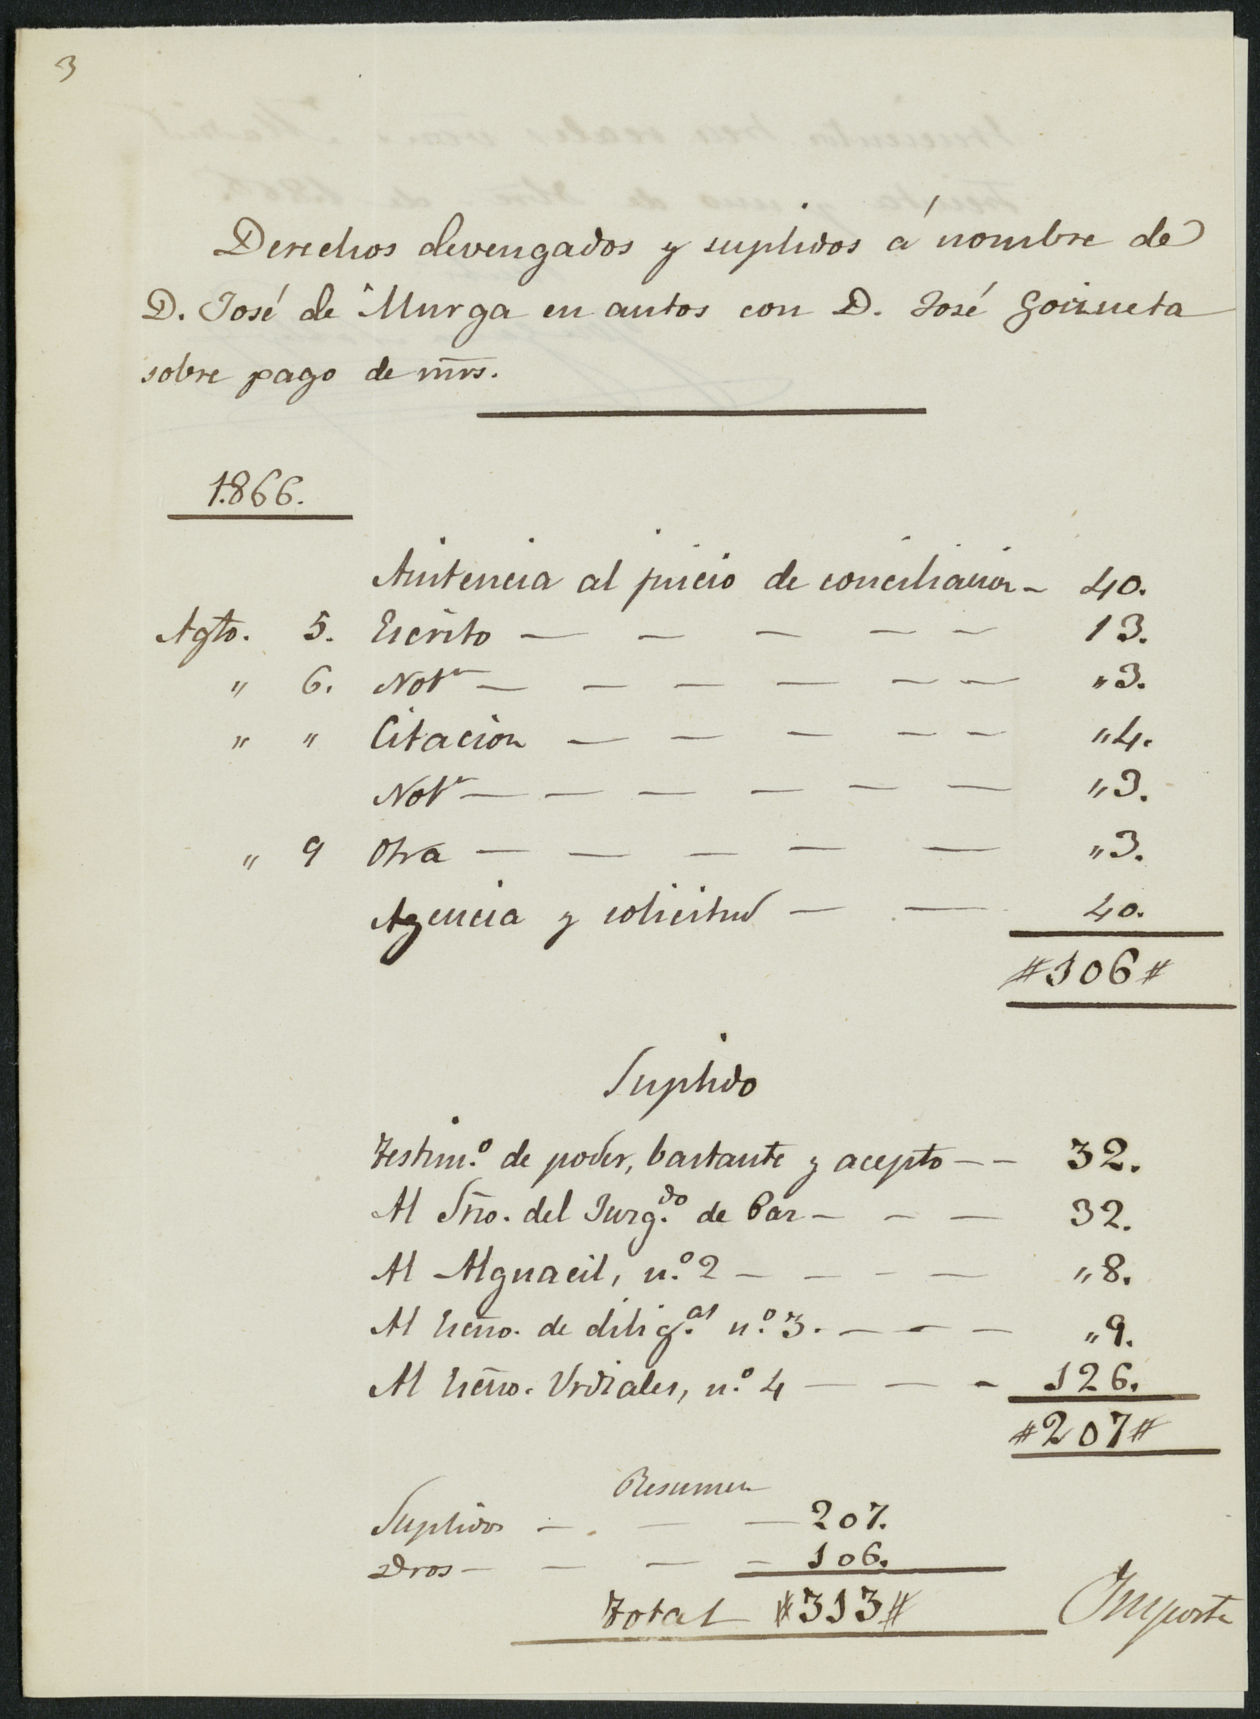 3
Derechos devengados y suplidos á nombre de
D. José de Murga en autos con D. José Goizueta
sobre pago de mrs.
1866.
Asistencia al juicio de conciliacion - 40.
Agto. 5. Escrito — — — — — 13.
" 6. Notn — — — — — — "3.
" " Citacion — — — — — "4.
Notn — — — — — — "3.
" 9 Otra — — — — — "3.
Agencia y solicitud — — 40.
#106#
Suplido
Testim.o de poder, bastante y acepto — — 32.
Al Srio. del Juzg.do de Paz — — — 32.
Al Alguacil, n.o 2 — — — — "8.
Al Escño. de dilig.as n.o 3. — — — "9.
Al Escño. Urdiales, n.o 4 — — - 126.
#207#
Resumen
Suplidos — — — 207.
Dros — — — — 106.
Total #313#
Importa